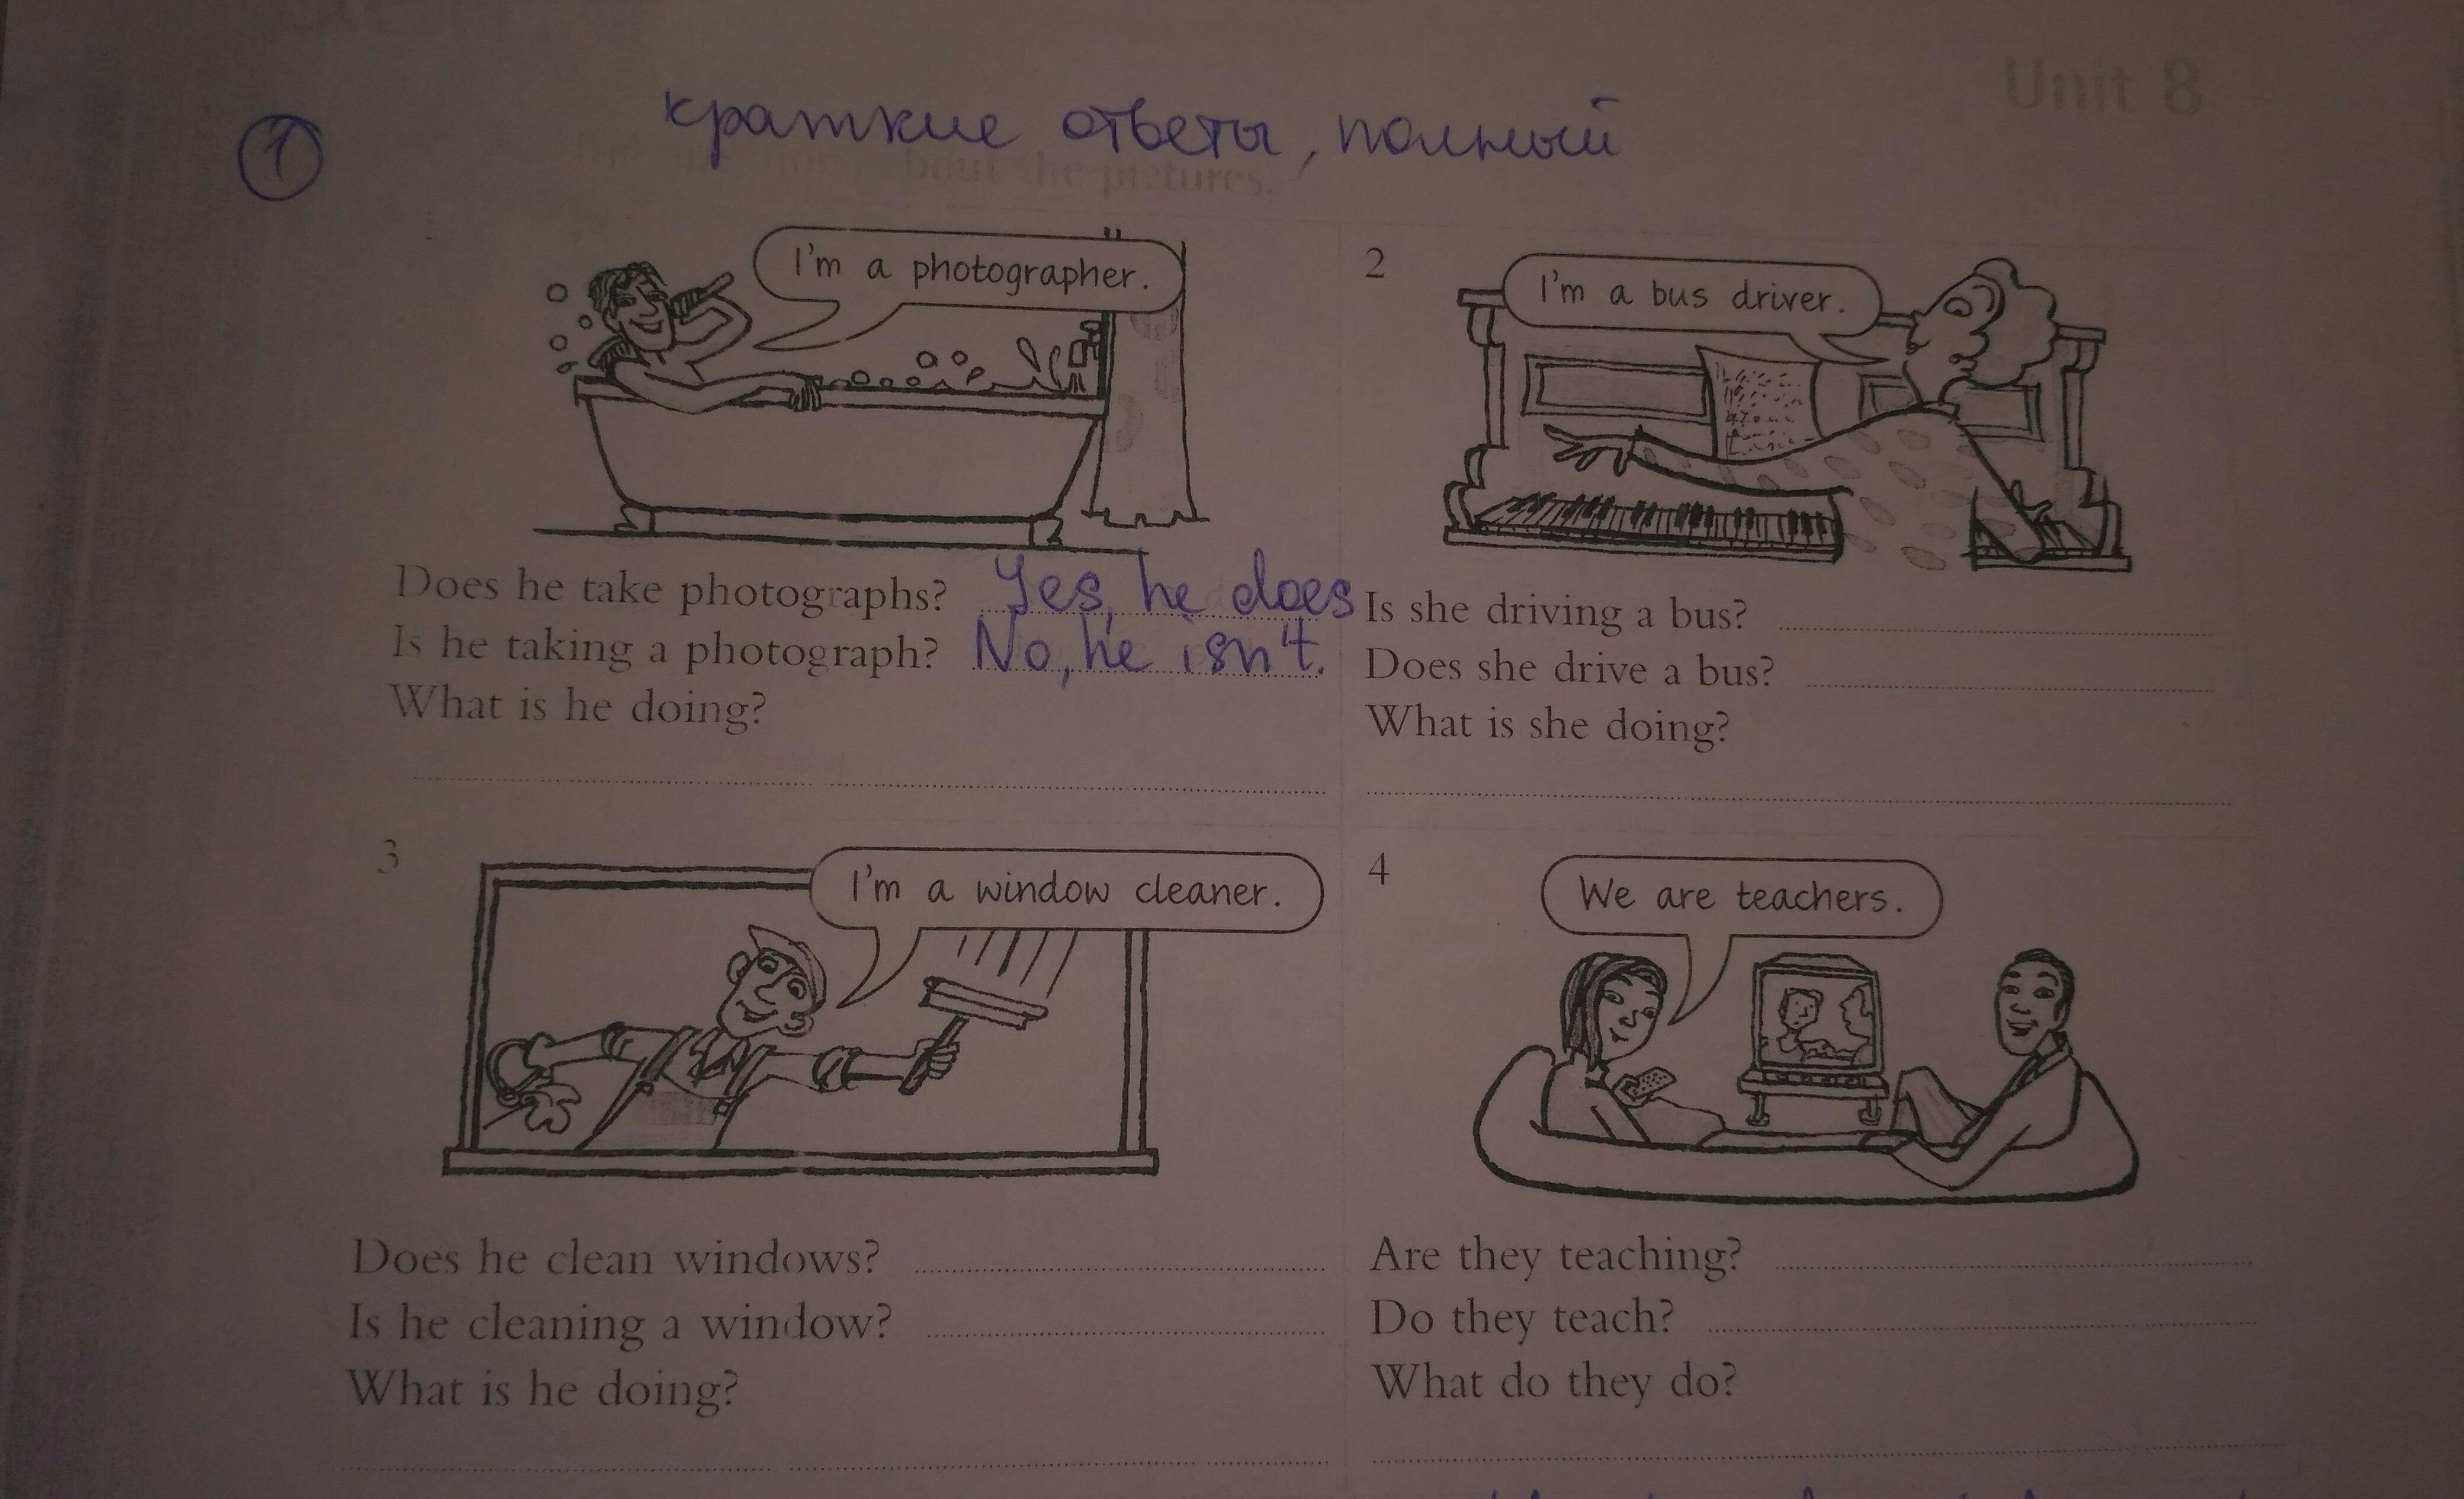 Unit 8
① краткие ответы, полный
bout the pictures.
I'm a photographer.
Does he take photographs? Yes, he does
Is he taking a photograph? No, he isn't.
What is he doing?
2
I'm a bus driver.
Is she driving a bus?
Does she drive a bus?
What is she doing?
3
I'm a window cleaner.
Does he clean windows?
Is he cleaning a window?
What is he doing?
4
We are teachers.
Are they teaching?
Do they teach?
What do they do?